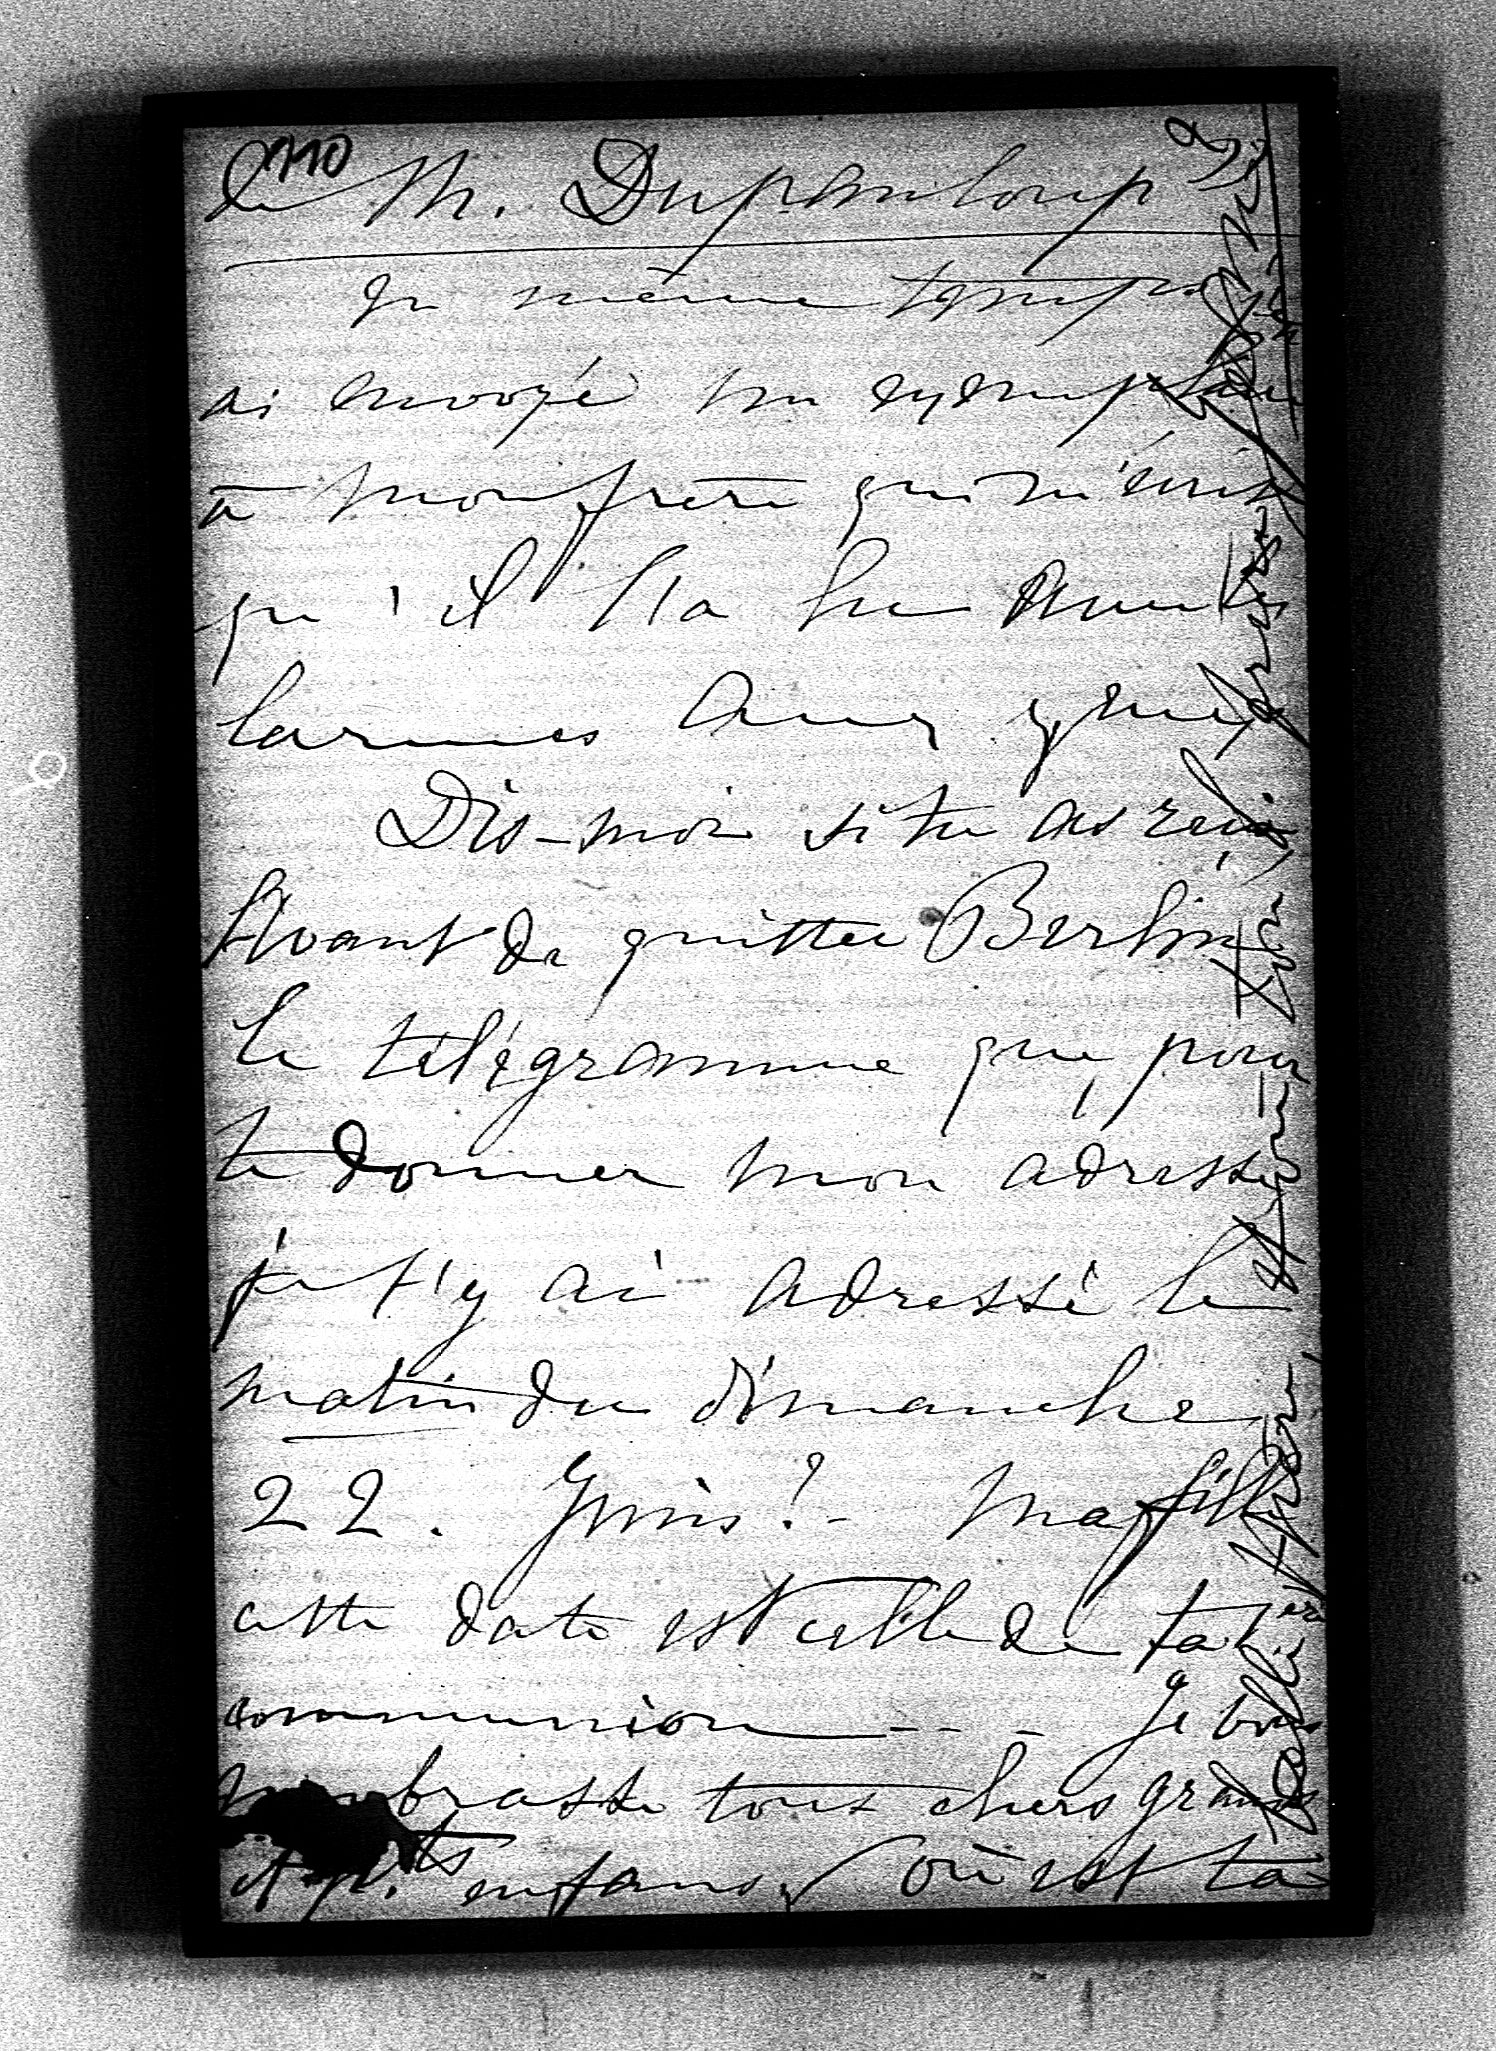 110
de M. Dupanloup
En même temps
ai envoyé un exemplaire
à mon frère qui m'écrit
qu'il l'a lu avec
larmes aux yeux
Dis-moi si tu as reçu
Avant de quitter Berlin
le télégramme que, pour
te donner mon adresse
je t'y ai adressé le
matin du dimanche
22. Juin? - Ma fille
cette date est celle de ta 1ère
communion - - - Je vous
embrasse tous chers grands
et p.ts enfans, où est ta